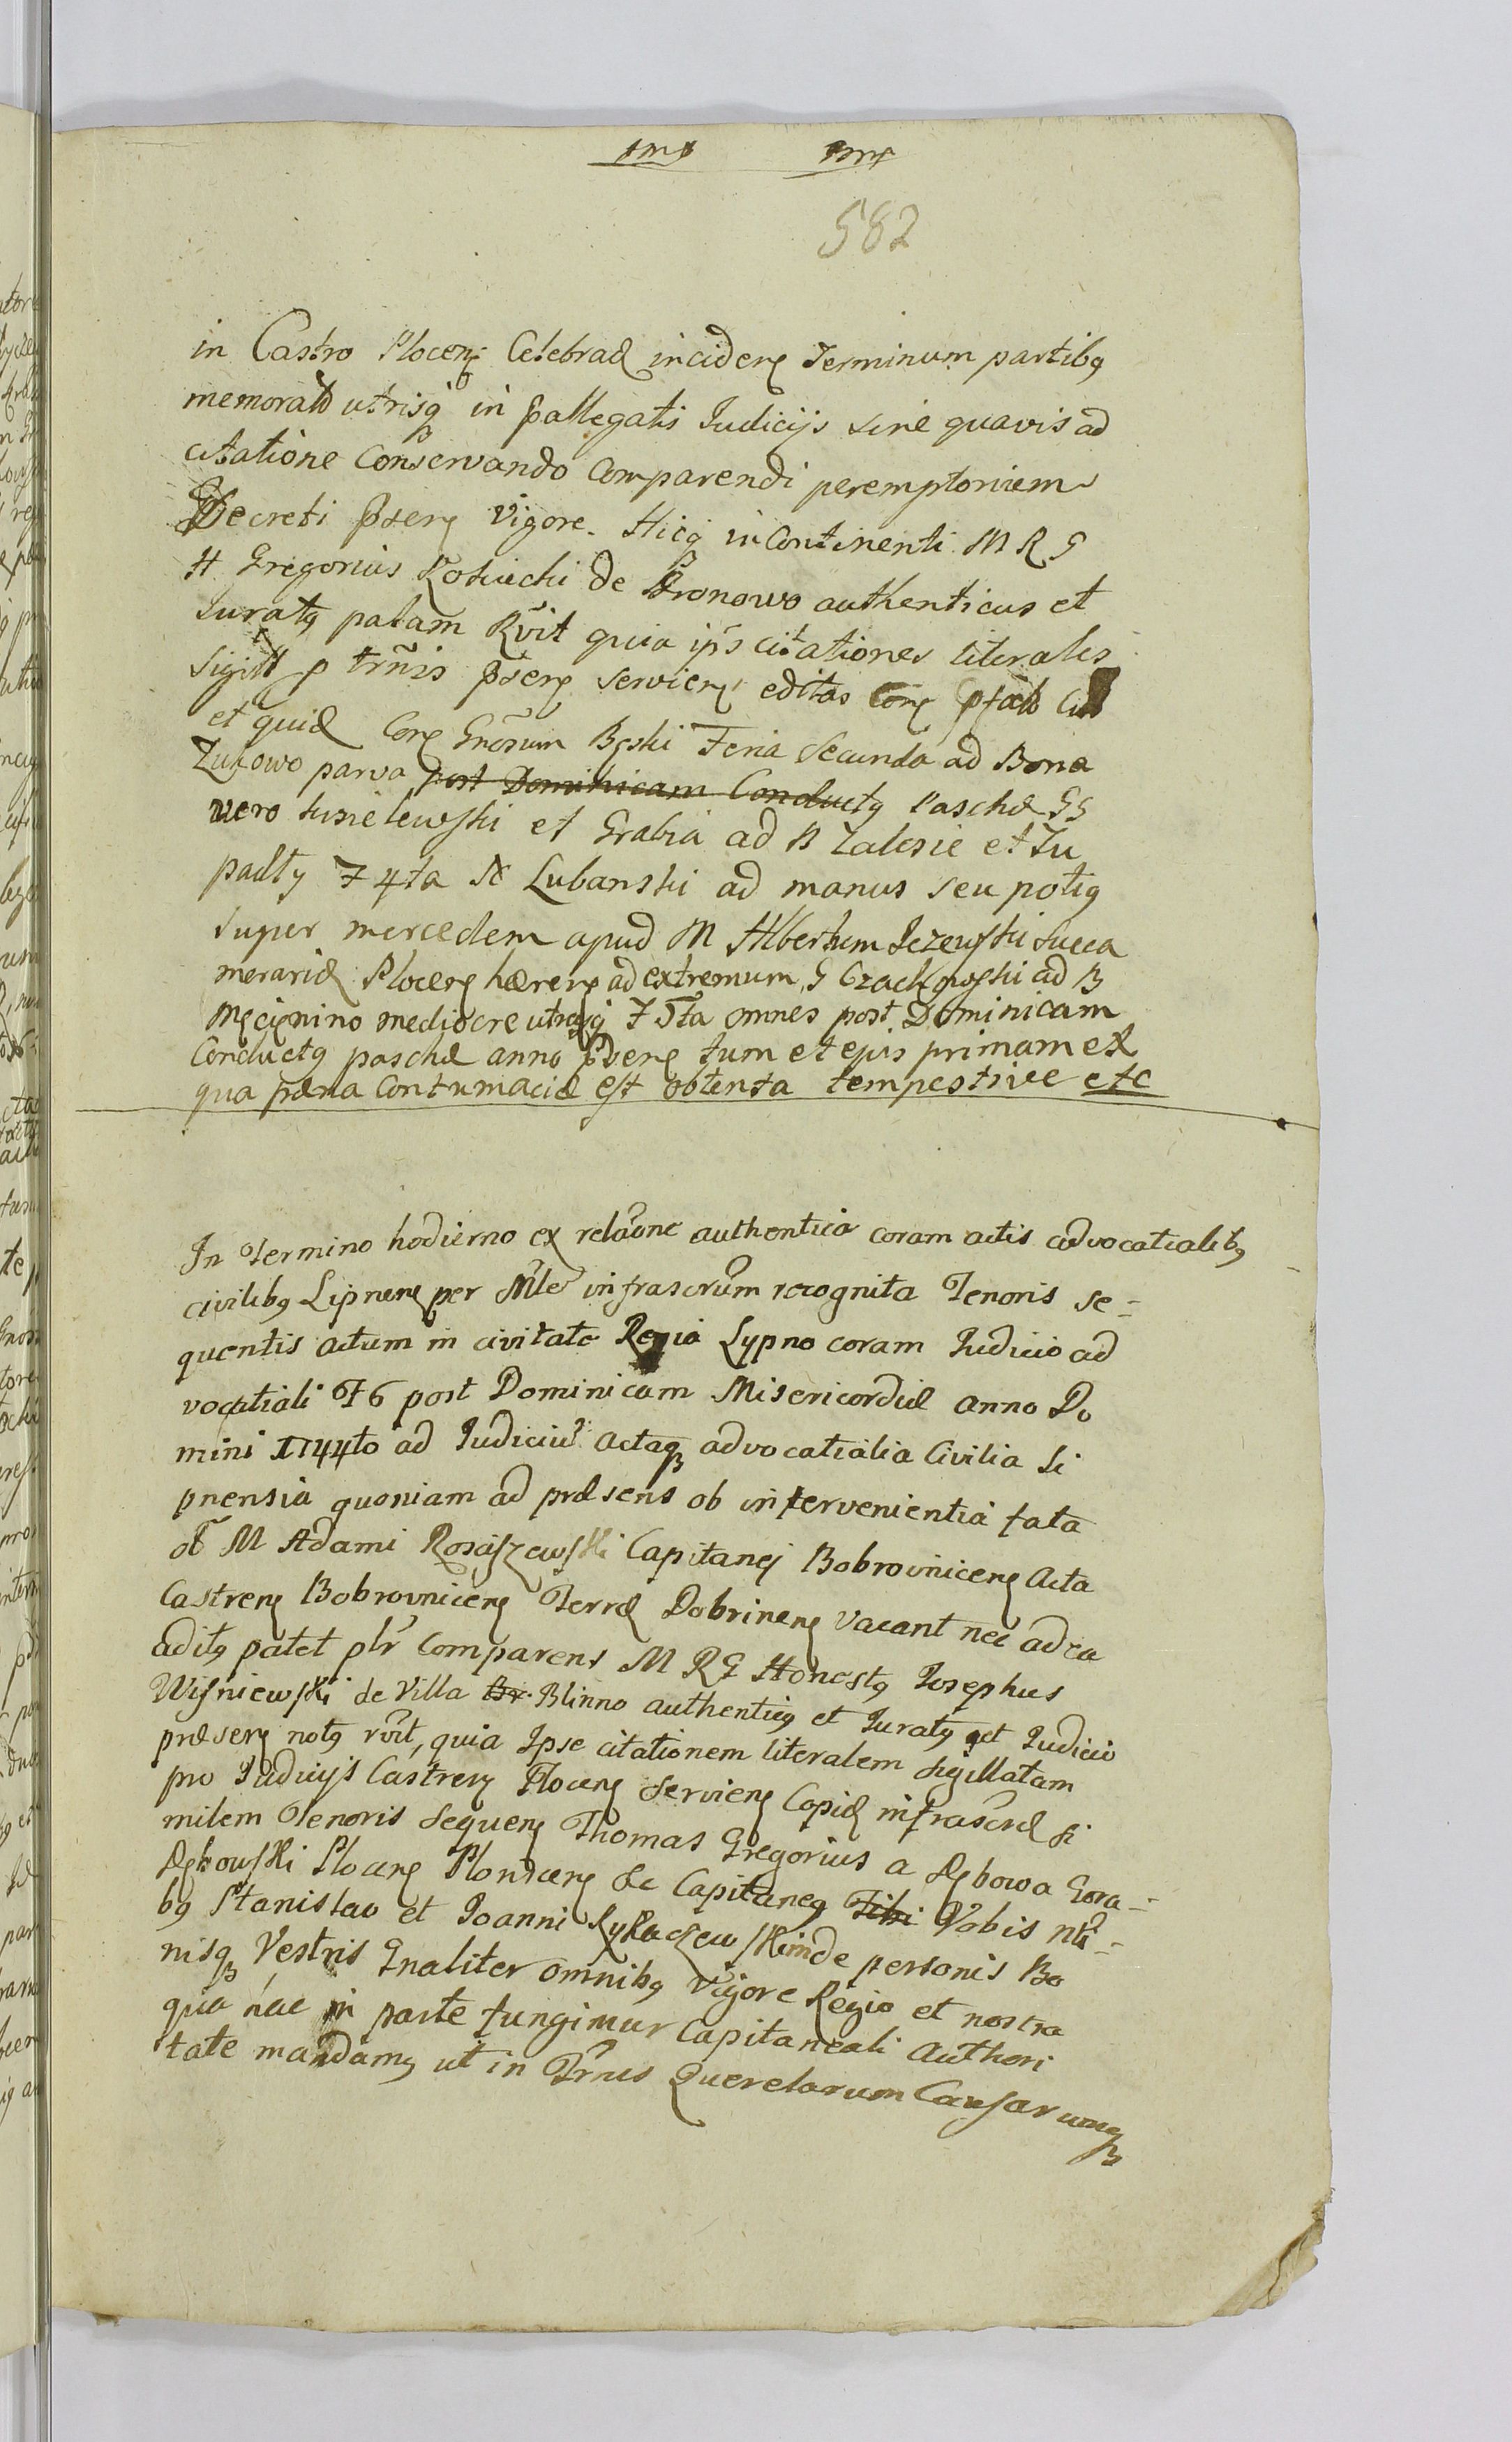 582
in Castro Plocen Celebrad inciden Terminum partibq
memorato utrisq in pallegatis Judicijs sine quavis ad
citatione Conservando Comparendi peremptorium
Decreti psen Vigore. Hicq in continenti M R G
H Gregorius Kosiucki de Bronowo authenticus et
Juratq palam Rvit quia ips citationes literales
Sigill p trnis psen servien editas
et quid Gnosum Bęski Feria Secunda ad Bona
Zukowo parva post Dominicam Conductq Paschæ GG
vero et Grabia ad B Zalesie et Zu
padly F 4ta N Lubanski ad manus seu potiq
super mercedem apud M Albertum Jezewski Succa
merariæ Plocen hæren ad extremum, G ad B
Męcięnino mediocre utrasq F 5ta omnes post Dominicam
Conductq paschæ anno psen tum et epis primam ex
qua pæna Contumaciæ est obtenta tempestive etc
In Termino hodierno ex relaone authentica coram actis advocatialibq
civilibq Lipnen per Mle infrascrum recognita Tenoris se-
quentis actum in civitate Regia Lypno coram Judicio ad
vocatiali F6 post Dominicam Misericordiæ anno Do
mini 1744to ad Judiciu Actaq advocatialia Civilia Li
pnensia quoniam ad præsens ob intervenientia fata
ol M Adami Rosciszewski Capitanej Bobrovnicen Acta
Castren Bobrovnicen Terræ Dobrinen vacant nec ad ea
aditq patet plr Comparens M R G Honestq Josephus
Wisniewski de Villa Br. Blinno authenticq et Juratq et Judicio
præsen notq rvit, quia Ipse citationem literalem sigillatam
pro Judicijs Castren Plocen Servien Copiæ infrascræ si
milem Tenoris Sequen Thomas Gregorius a Dębowa Gora-
Dębowski Plocen Plonscen &c Capitaneq Tibi Vobis nli-
bq Stanislao et Joanni Rykaczewskim de personis Bo
nisq Vestris Gnaliter omnibq Vigore Regio et nostra
qua hac in parte fungimur Capitaneali Authori
tate mandamq ut in Trnis Querelarum Causarumq